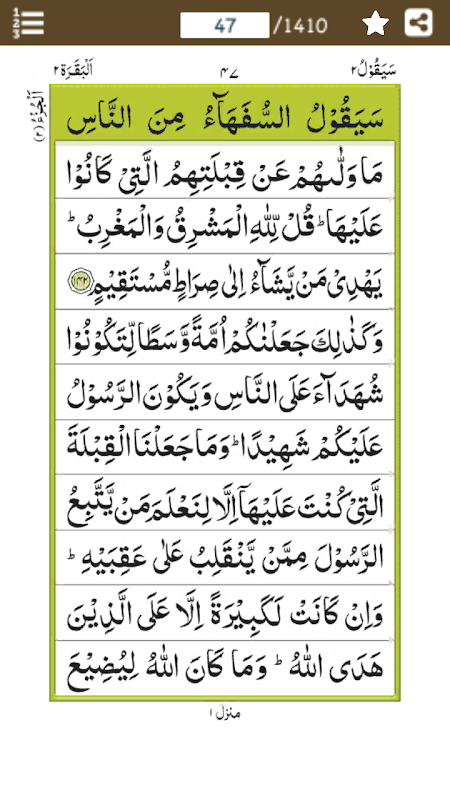 47 /1410
سَيَقُوْلُ٢ ٤٧ اَلْبَقَرَة٢
اَلْجُزْءُ (٢)
سَيَقُوْلُ السُّفَهَآءُ مِنَ النَّاسِ
مَا وَلّٰىهُمْ عَنْ قِبْلَتِهِمُ الَّتِيْ كَانُوْا
عَلَيْهَا ؕ قُلْ لِّلّٰهِ الْمَشْرِقُ وَالْمَغْرِبُ ؕ
يَهْدِيْ مَنْ يَّشَآءُ اِلٰى صِرَاطٍ مُّسْتَقِيْمٍ ﴿١٤٢﴾
وَكَذٰلِكَ جَعَلْنٰكُمْ اُمَّةً وَّسَطًا لِّتَكُوْنُوْا
شُهَدَآءَ عَلَى النَّاسِ وَيَكُوْنَ الرَّسُوْلُ
عَلَيْكُمْ شَهِيْدًا ؕ وَمَا جَعَلْنَا الْقِبْلَةَ
الَّتِيْ كُنْتَ عَلَيْهَآ اِلَّا لِنَعْلَمَ مَنْ يَّتَّبِعُ
الرَّسُوْلَ مِمَّنْ يَّنْقَلِبُ عَلٰى عَقِبَيْهِ ؕ
وَاِنْ كَانَتْ لَكَبِيْرَةً اِلَّا عَلَى الَّذِيْنَ
هَدَى اللّٰهُ ؕ وَمَا كَانَ اللّٰهُ لِيُضِيْعَ
منزل ١